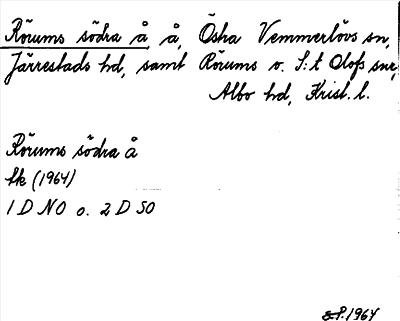 Rörums södra å å, Östra Vemmerlövs sn,
Järrestads hd, samt Rörums o. S:t Olofs snr,
Albo hd, Krist. l.
Rörums södra å
tk (1964)
1 D NO o. 2 D SO
1964